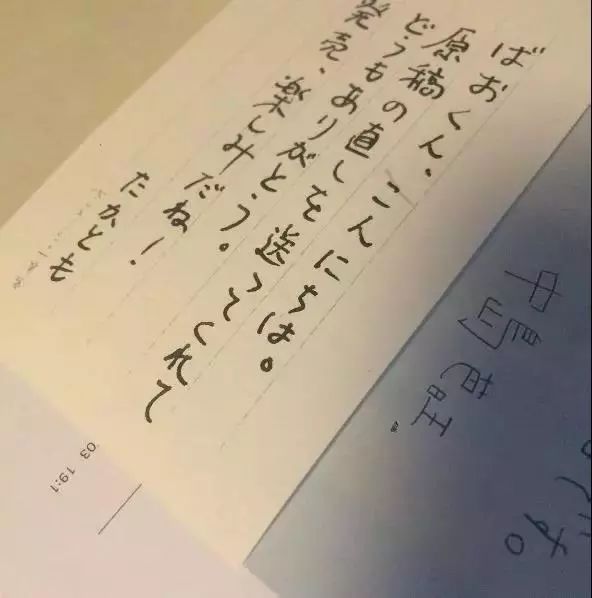 ばおくん、こんにちは。
原稿の直しを送ってくれて
どうもありがとう。
発売、楽しみだね！
たかとも
中島芭旺
'03 19:1